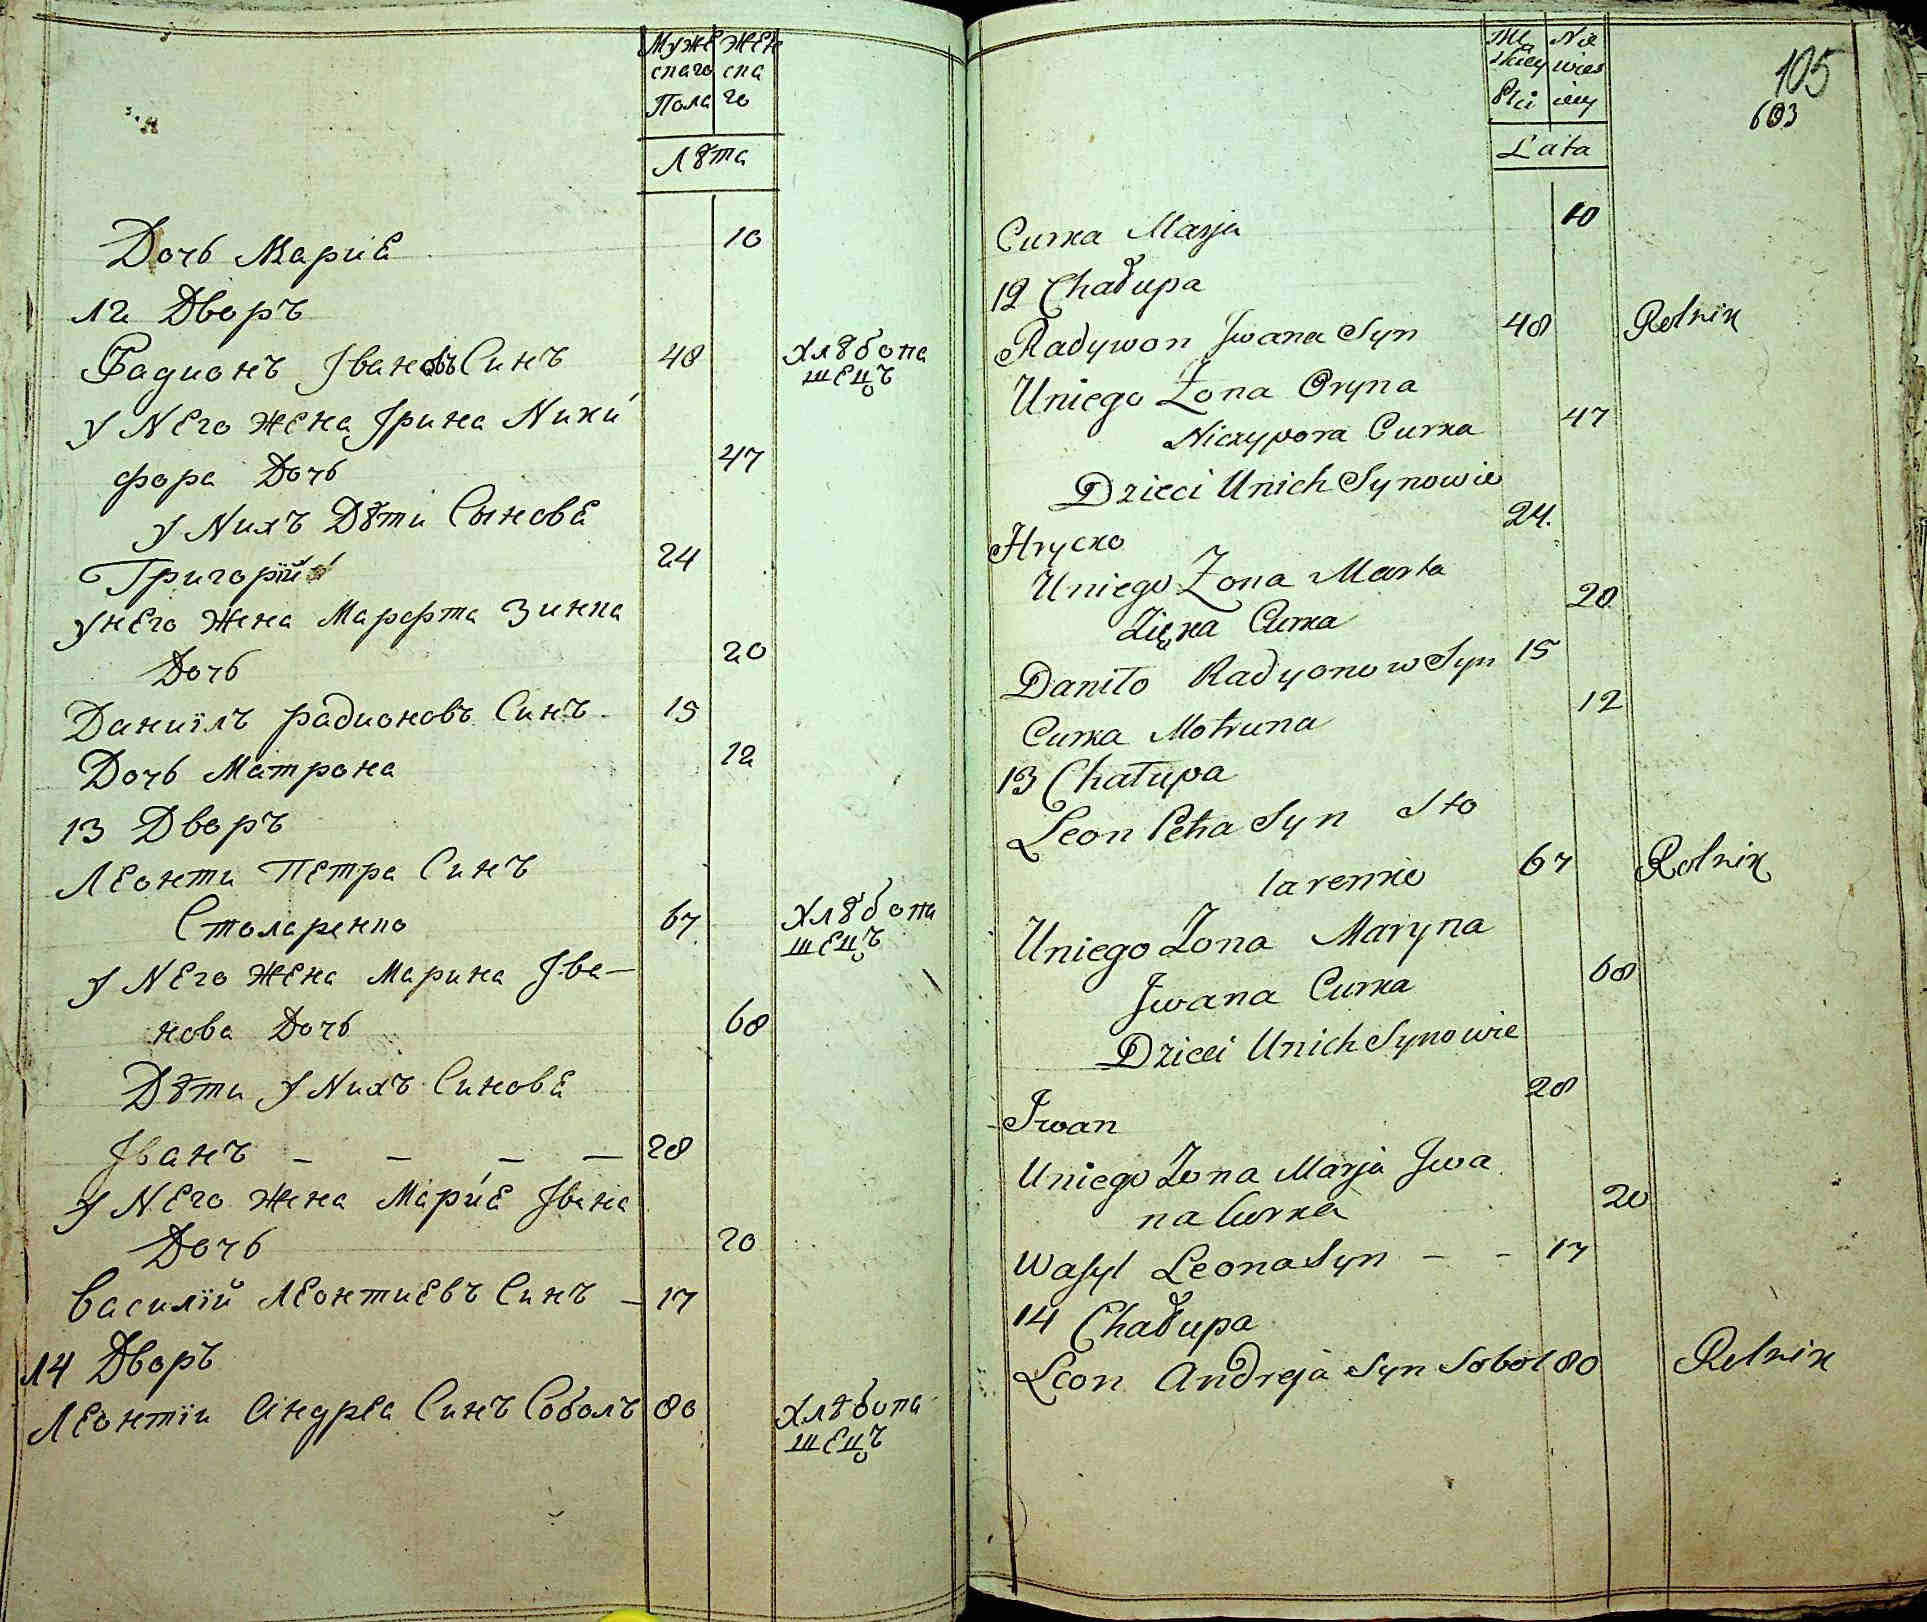 Муже Жен
скаго ска
Пола го
Лѣта
Дочь Марие 10
12 Дворъ
Радионъ Івановъ Синъ 48 Хлѣбопа
шецъ
у Него жена Ірина Ники
фора Дочь 47
у Нихъ Дѣти Сынове
Григорій 24
у Него Жена Марфта Зинка
Дочь 20
Даниїлъ радионовъ Синъ 15
Дочь Матрона 12
13 Дворъ
Леонти Петра Синъ
Столаренко 67 Хлѣбопа
шецъ
у Него Жена Марина Іва-
нова Дочь 68
Дѣти у Нихъ Синове
Іванъ - - - - 28
у Него Жена Марие Івана
Дочь 20
Василій Леонтиевъ Синъ - 17
14 Дворъ
Леонтіи Андрея Синъ Соболъ 80 Хлѣбопа
шецъ
105
603
Mę Nie
skiey wies
Płci ciey
Lata
Curka Marja 10
12 Chałupa
Radywon Jwana Syn 48 Rolnik
Uniego Żona Oryna
Niczypora Curka 47
Dzieci Unich Synowie
Hrycko 24.
Uniego Żona Marta
Zięka Curka 20
Daniło Radyonow Syn 15
Curka Motruna 12
13 Chałupa
Leon Petra Syn Sto
larenko 67 Rolnik
Uniego Żona Maryna
Jwana Curka 68
Dzieci Unich Synowie
Jwan 28
Uniego Żona Marja Jwa
na Curka 20
Wasyl Leona Syn - - 17
14 Chałupa
Leon Andreja Syn Sobol 80 Rolnik